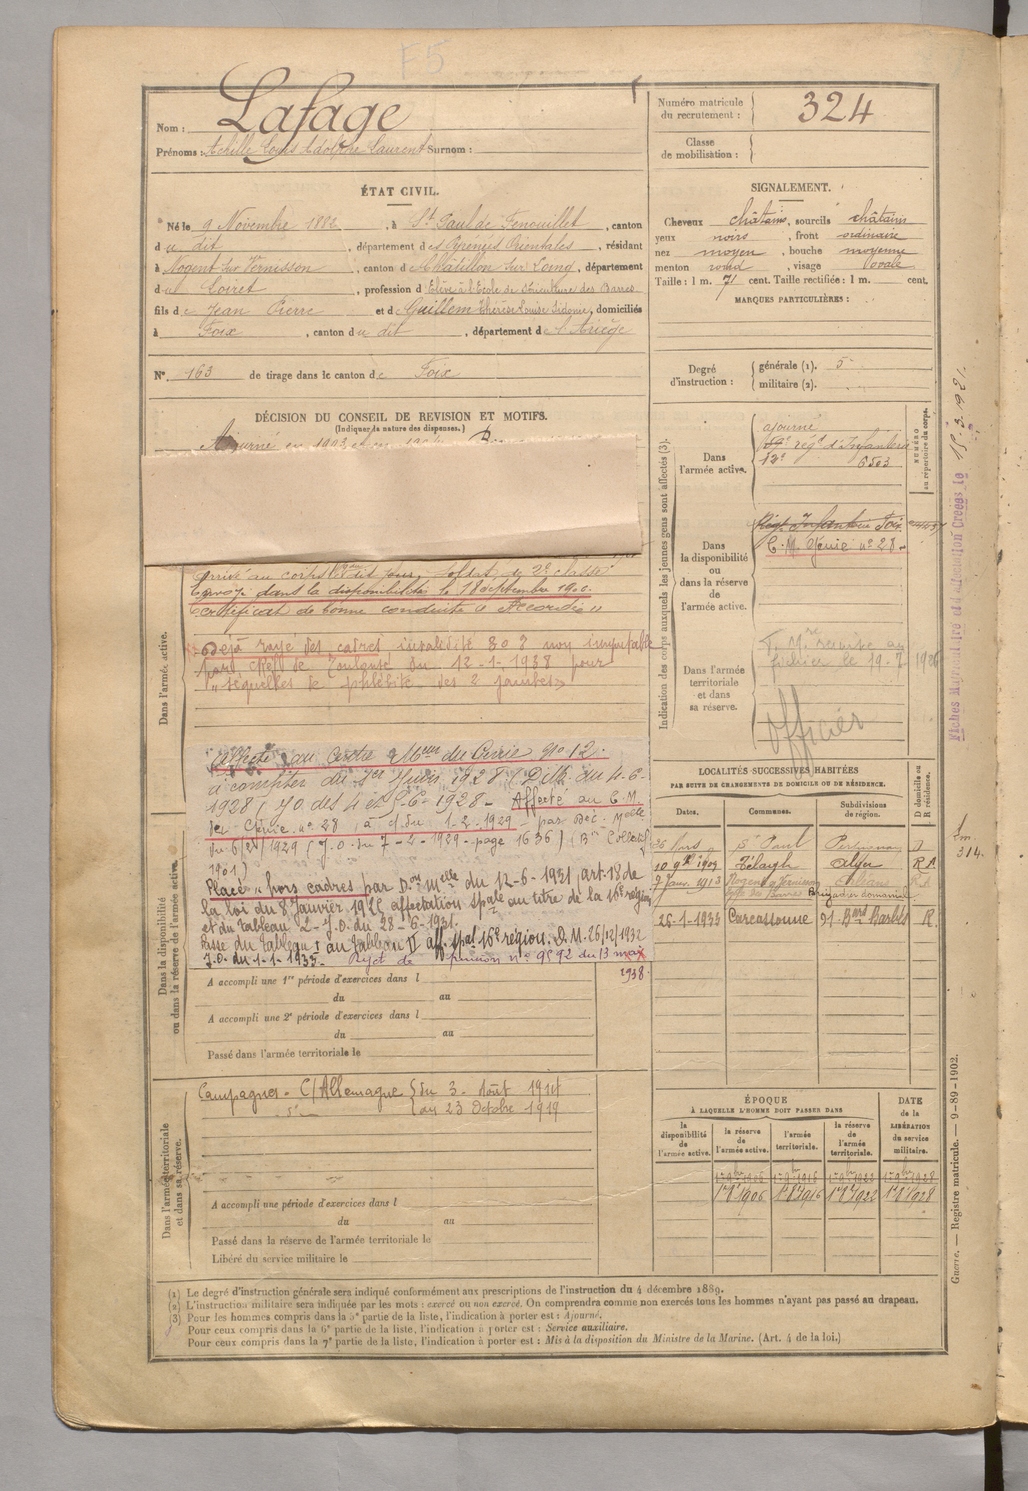 Nom : Lafage
Prénoms : Achille Louis Adolphe Laurent Surnom :
Numéro matricule du recrutement : 324
Classe de mobilisation :
ÉTAT CIVIL.
Né le 9 Novembre 1882, à St Paul de Fenouillet, canton
du dit, département des Pyrénées Orientales, résidant
à Nogent sur Vernisson, canton de Châtillon sur Loing, département
du Loiret, profession d Elève à l'Ecole de Sylviculture des Barres
fils de Jean Pierre et de Guillem Thérèse Louise Sidonie, domiciliés
à Foix, canton du dit, département de l'Ariège
N° 163 de tirage dans le canton de Foix
SIGNALEMENT.
Cheveux châtains, sourcils châtains
yeux noirs, front ordinaire
nez moyen, bouche moyenne
menton rond, visage ovale
Taille : 1 m. 71 cent. Taille rectifiée : 1 m. cent.
MARQUES PARTICULIÈRES :
Degré d'instruction :
générale (1). 5
militaire (2).
DÉCISION DU CONSEIL DE REVISION ET MOTIFS.
(Indiquer la nature des dispenses.)
Ajourné en 1903
Indication des corps auxquels les jeunes gens sont affectés (3).
NUMÉRO au répertoire du corps.
Dans l'armée active.
ajourné
59e régt d'Infanterie
12e 6503
Dans la disponibilité ou dans la réserve de l'armée active.
Régt Infanterie Foix
C. M. Génie n° 28
Dans l'armée territoriale et dans sa réserve.
fichier le 19-7 1926
officier
Fiches Matriculaire et d'affectation Créées le 15.3.1921.
Dans l'armée active.
Arrivé au corps le dit jour, soldat de 2e classe
Envoyé dans la disponibilité le 18 septembre 1906.
Certificat de bonne conduite « Accordé »
Déjà rayé des cadres invalidité 80 % non imputable
par CRéf de Toulouse du 12-1-1938 pour
« séquelles de phlébite des 2 jambes »
Dans la disponibilité ou dans la réserve de l'armée active.
Affecté au Centre Mteur du Génie N° 12.
à compter du 1er Juin 1928 (D.M. du 4-6-
1928 (J.O. des 4 et 5-6-1928 - Affecté au C.M.
du Génie n° 28, à c. du 1-2-1929 - par Déc. Melle
du 6/2/1929 (J.O. du 7-2-1929 - page 1636)
Placé « hors cadres par Don Melle du 12-6-1931 (art. 18 de
la loi du 8 Janvier 1925 affectation Spale au titre de la 16e région
et du Tableau 2 - J.O. du 28-6-1931.
Passe du tableau I au tableau II aff. spal 16e région. D.M. 26/12/1932
J.O. du 1-1-1933 - Rejet de pension n° 9592 du 13 mai
1938.
A accompli une 1re période d'exercices dans l
du au
A accompli une 2e période d'exercices dans l
du au
Passé dans l'armée territoriale le
LOCALITÉS SUCCESSIVES HABITÉES
PAR SUITE DE CHANGEMENTS DE DOMICILE OU DE RÉSIDENCE.
Dates. Communes. Subdivisions de région. D domicile ou R résidence.
St Paul Perpignan D
10 9bre 1909 Télagh Alger R A
7 Janv. 1913 Nogent s/ Vernisson Orléans R A
Brigadier domanial
26-1-1933 Carcassonne 91 Bard Barbès R.
314.
Dans l'armée territoriale et dans sa réserve.
Campagnes - C/Allemagne du 3 Août 1914
au 23 Octobre 1919
A accompli une période d'exercices dans l
du au
Passé dans la réserve de l'armée territoriale le
Libéré du service militaire le
ÉPOQUE
À LAQUELLE L'HOMME DOIT PASSER DANS
DATE de la LIBÉRATION du service militaire.
la disponibilité de l'armée active.
la réserve de l'armée active.
l'armée territoriale.
la réserve de l'armée territoriale.
1er 9bre 1906 1er 9bre 1916 1er 9bre 1922 1er 9bre 1928
1er 8bre 1906 1er 8bre 1916 1er 8bre 1922 1er 8bre 1928
Guerre. — Registre matricule. — 9-89-1902.
(1) Le degré d'instruction générale sera indiqué conformément aux prescriptions de l'instruction du 4 décembre 1889.
(2) L'instruction militaire sera indiquée par les mots : exercé ou non exercé. On comprendra comme non exercés tous les hommes n'ayant pas passé au drapeau.
(3) Pour les hommes compris dans la 5e partie de la liste, l'indication à porter est : Ajourné.
Pour ceux compris dans la 6e partie de la liste, l'indication à porter est : Service auxiliaire.
Pour ceux compris dans la 7e partie de la liste, l'indication à porter est : Mis à la disposition du Ministre de la Marine. (Art. 4 de la loi.)